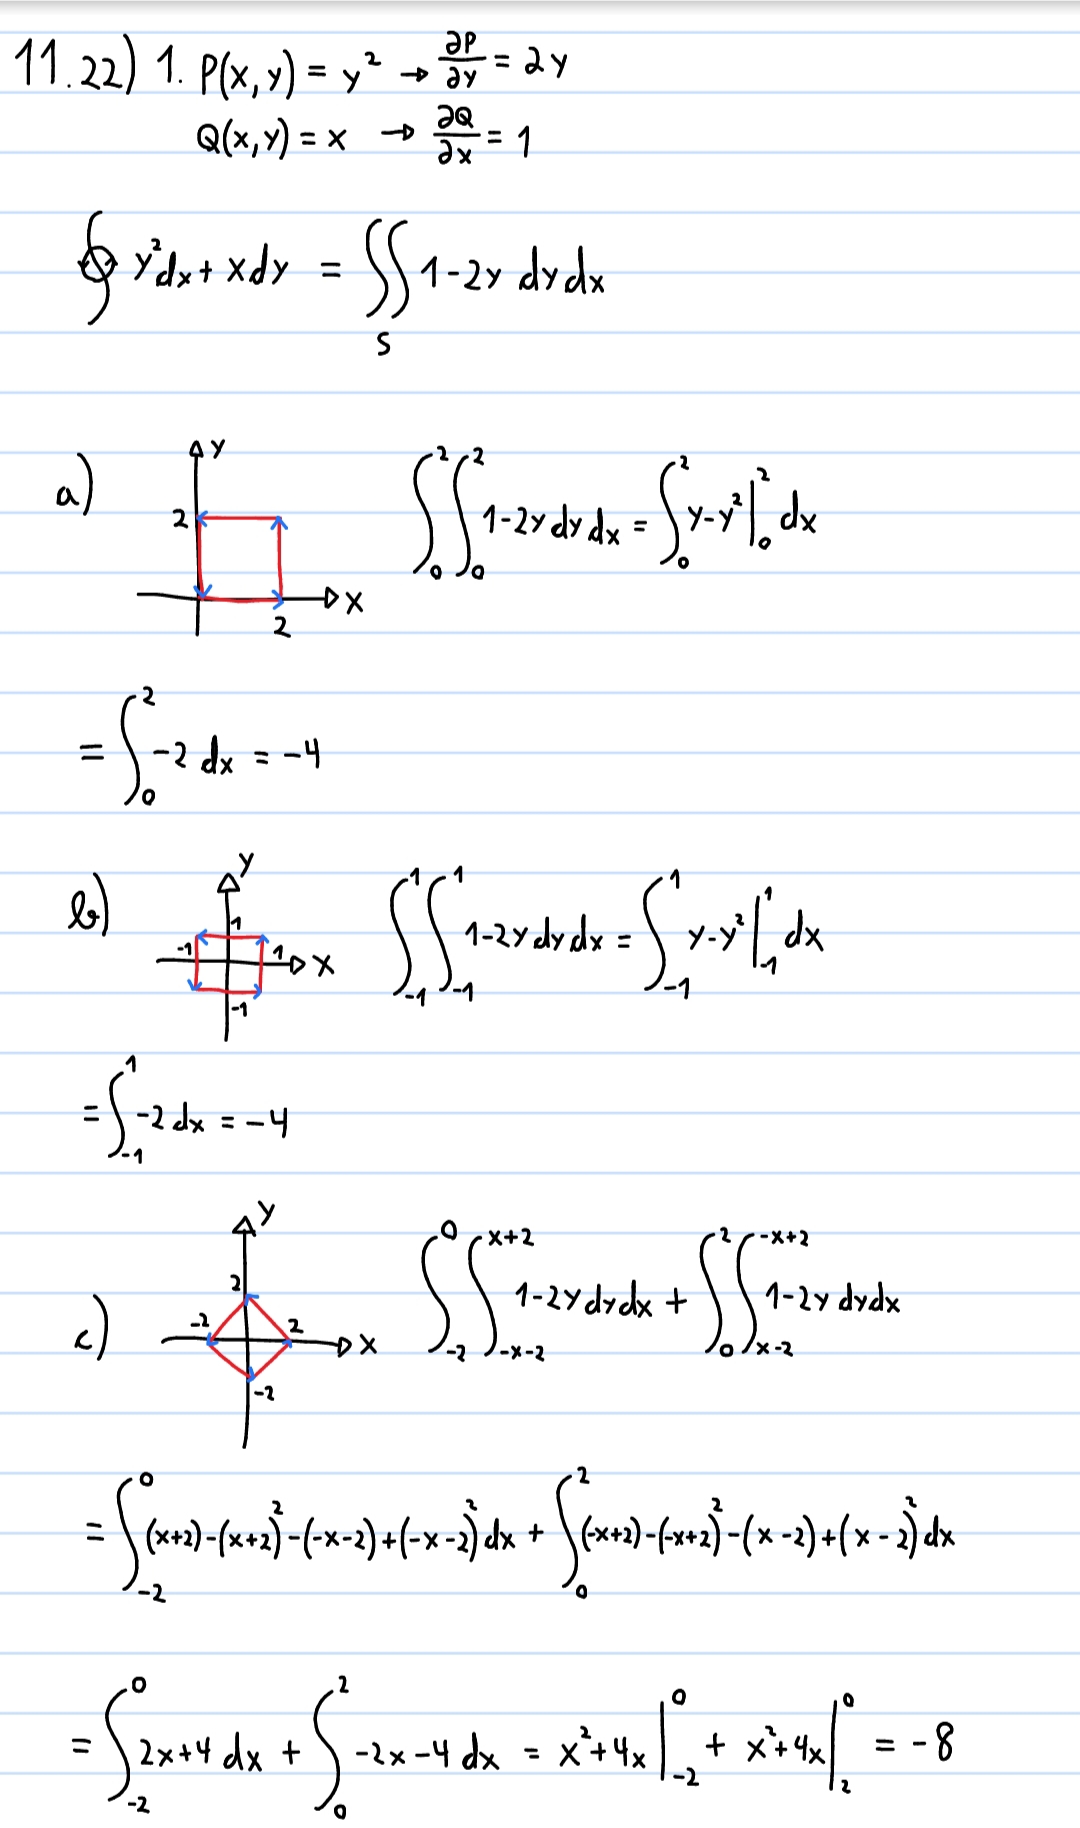 11.22) 1. P(x,y) = y² → ∂P/∂y = 2y
Q(x,y) = x → ∂Q/∂x = 1
∮ y²dx + xdy = ∬_S 1-2y dydx
a) y 2 2 x ∫_0^2 ∫_0^2 1-2y dy dx = ∫_0^2 y-y² |_0^2 dx
= ∫_0^2 -2 dx = -4
b) y 1 -1 1 -1 x ∫_-1^1 ∫_-1^1 1-2y dy dx = ∫_-1^1 y-y² |_-1^1 dx
= ∫_-1^1 -2 dx = -4
c) y 2 -2 2 -2 x ∫_-2^0 ∫_-x-2^x+2 1-2y dy dx + ∫_0^2 ∫_x-2^-x+2 1-2y dydx
= ∫_-2^0 (x+2)-(x+2)²-(-x-2)+(-x-2)² dx + ∫_0^2 (-x+2)-(-x+2)²-(x-2)+(x-2)² dx
= ∫_-2^0 2x+4 dx + ∫_0^2 -2x-4 dx = x²+4x |_-2^0 + x²+4x |_2^0 = -8